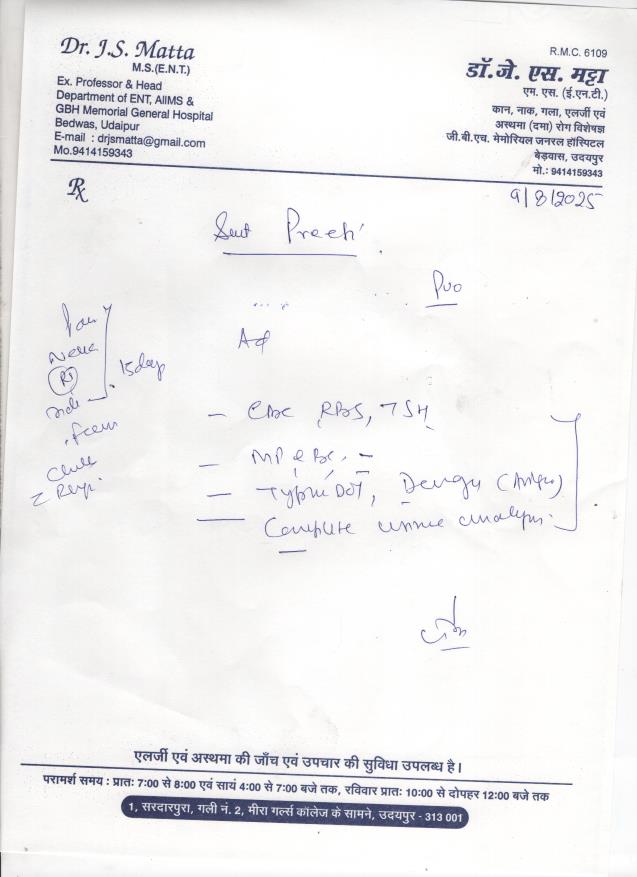 Dr. J.S. Matta
M.S.(E.N.T.)
Ex. Professor & Head
Department of ENT, AIIMS &
GBH Memorial General Hospital
Bedwas, Udaipur
E-mail : drjsmatta@gmail.com
Mo.9414159343
R.M.C. 6109
डॉ. जे. एस. मट्टा
एम. एस. (ई.एन.टी.)
कान, नाक, गला, एलर्जी एवं
अस्थमा (दमा) रोग विशेषज्ञ
जी.बी.एच. मेमोरियल जनरल हॉस्पिटल
बेड़वास, उदयपुर
मो.: 9414159343
Rx
9/8/2025
Smt Preeti
PUO
Pain
Neck
Rt
side
15 days
Adv
- CBC, RBS, TSH
- MP
- Typhi DOT, Dengu
- Complete urine analysis
एलर्जी एवं अस्थमा की जाँच एवं उपचार की सुविधा उपलब्ध है।
परामर्श समय : प्रातः 7:00 से 8:00 एवं सायं 4:00 से 7:00 बजे तक, रविवार प्रातः 10:00 से दोपहर 12:00 बजे तक
1, सरदारपुरा, गली नं. 2, मीरा गर्ल्स कॉलेज के सामने, उदयपुर - 313 001